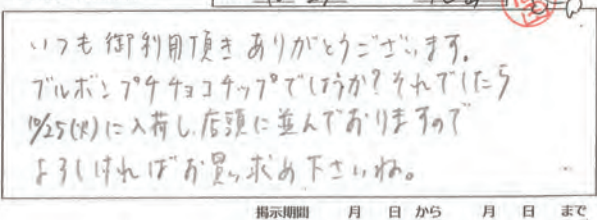 いつも御利用頂きありがとうございます。
ブルボンプチチョコチップでしょうか?それでしたら
10/25(火)に入荷し、店頭に並んでおりますので
よろしければお買い求め下さいね。
掲示期間 月 日 から 月 日 まで